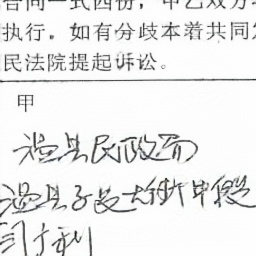 合同一式四份，甲乙双方
执行。如有分歧本着共同
民法院提起诉讼。
甲
温县民政局
温县子夏大街中段